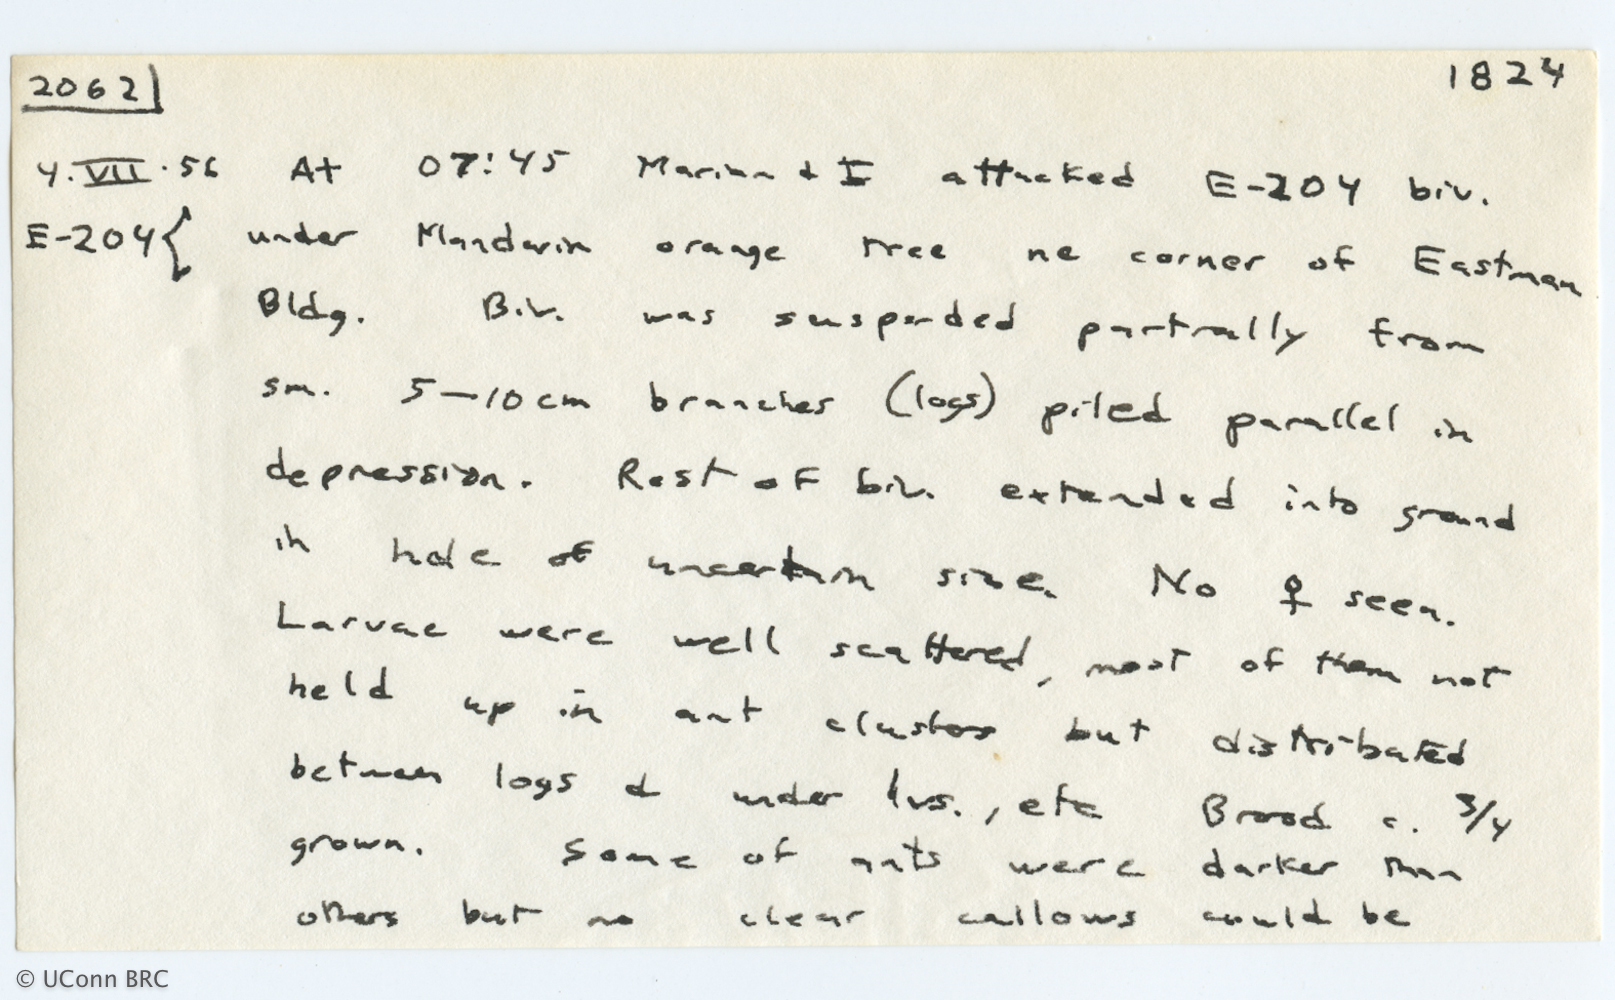 2062 1824
4.VII.56 At 07:45 Marian & I attacked E-204 biv.
E-204{ under Mandarin orange tree ne corner of Eastman
Bldg. Biv. was suspended partially from
sm. 5-10cm branches (logs) piled parallel in
depression. Rest of biv. extended into ground
in hole of uncertain size. No ♀ seen.
Larvae were well scattered, most of them not
held up in ant clusters but distributed
between logs & under lvs., etc Brood c. 3/4
grown. Some of ants were darker than
others but no clear callows could be
© UConn BRC